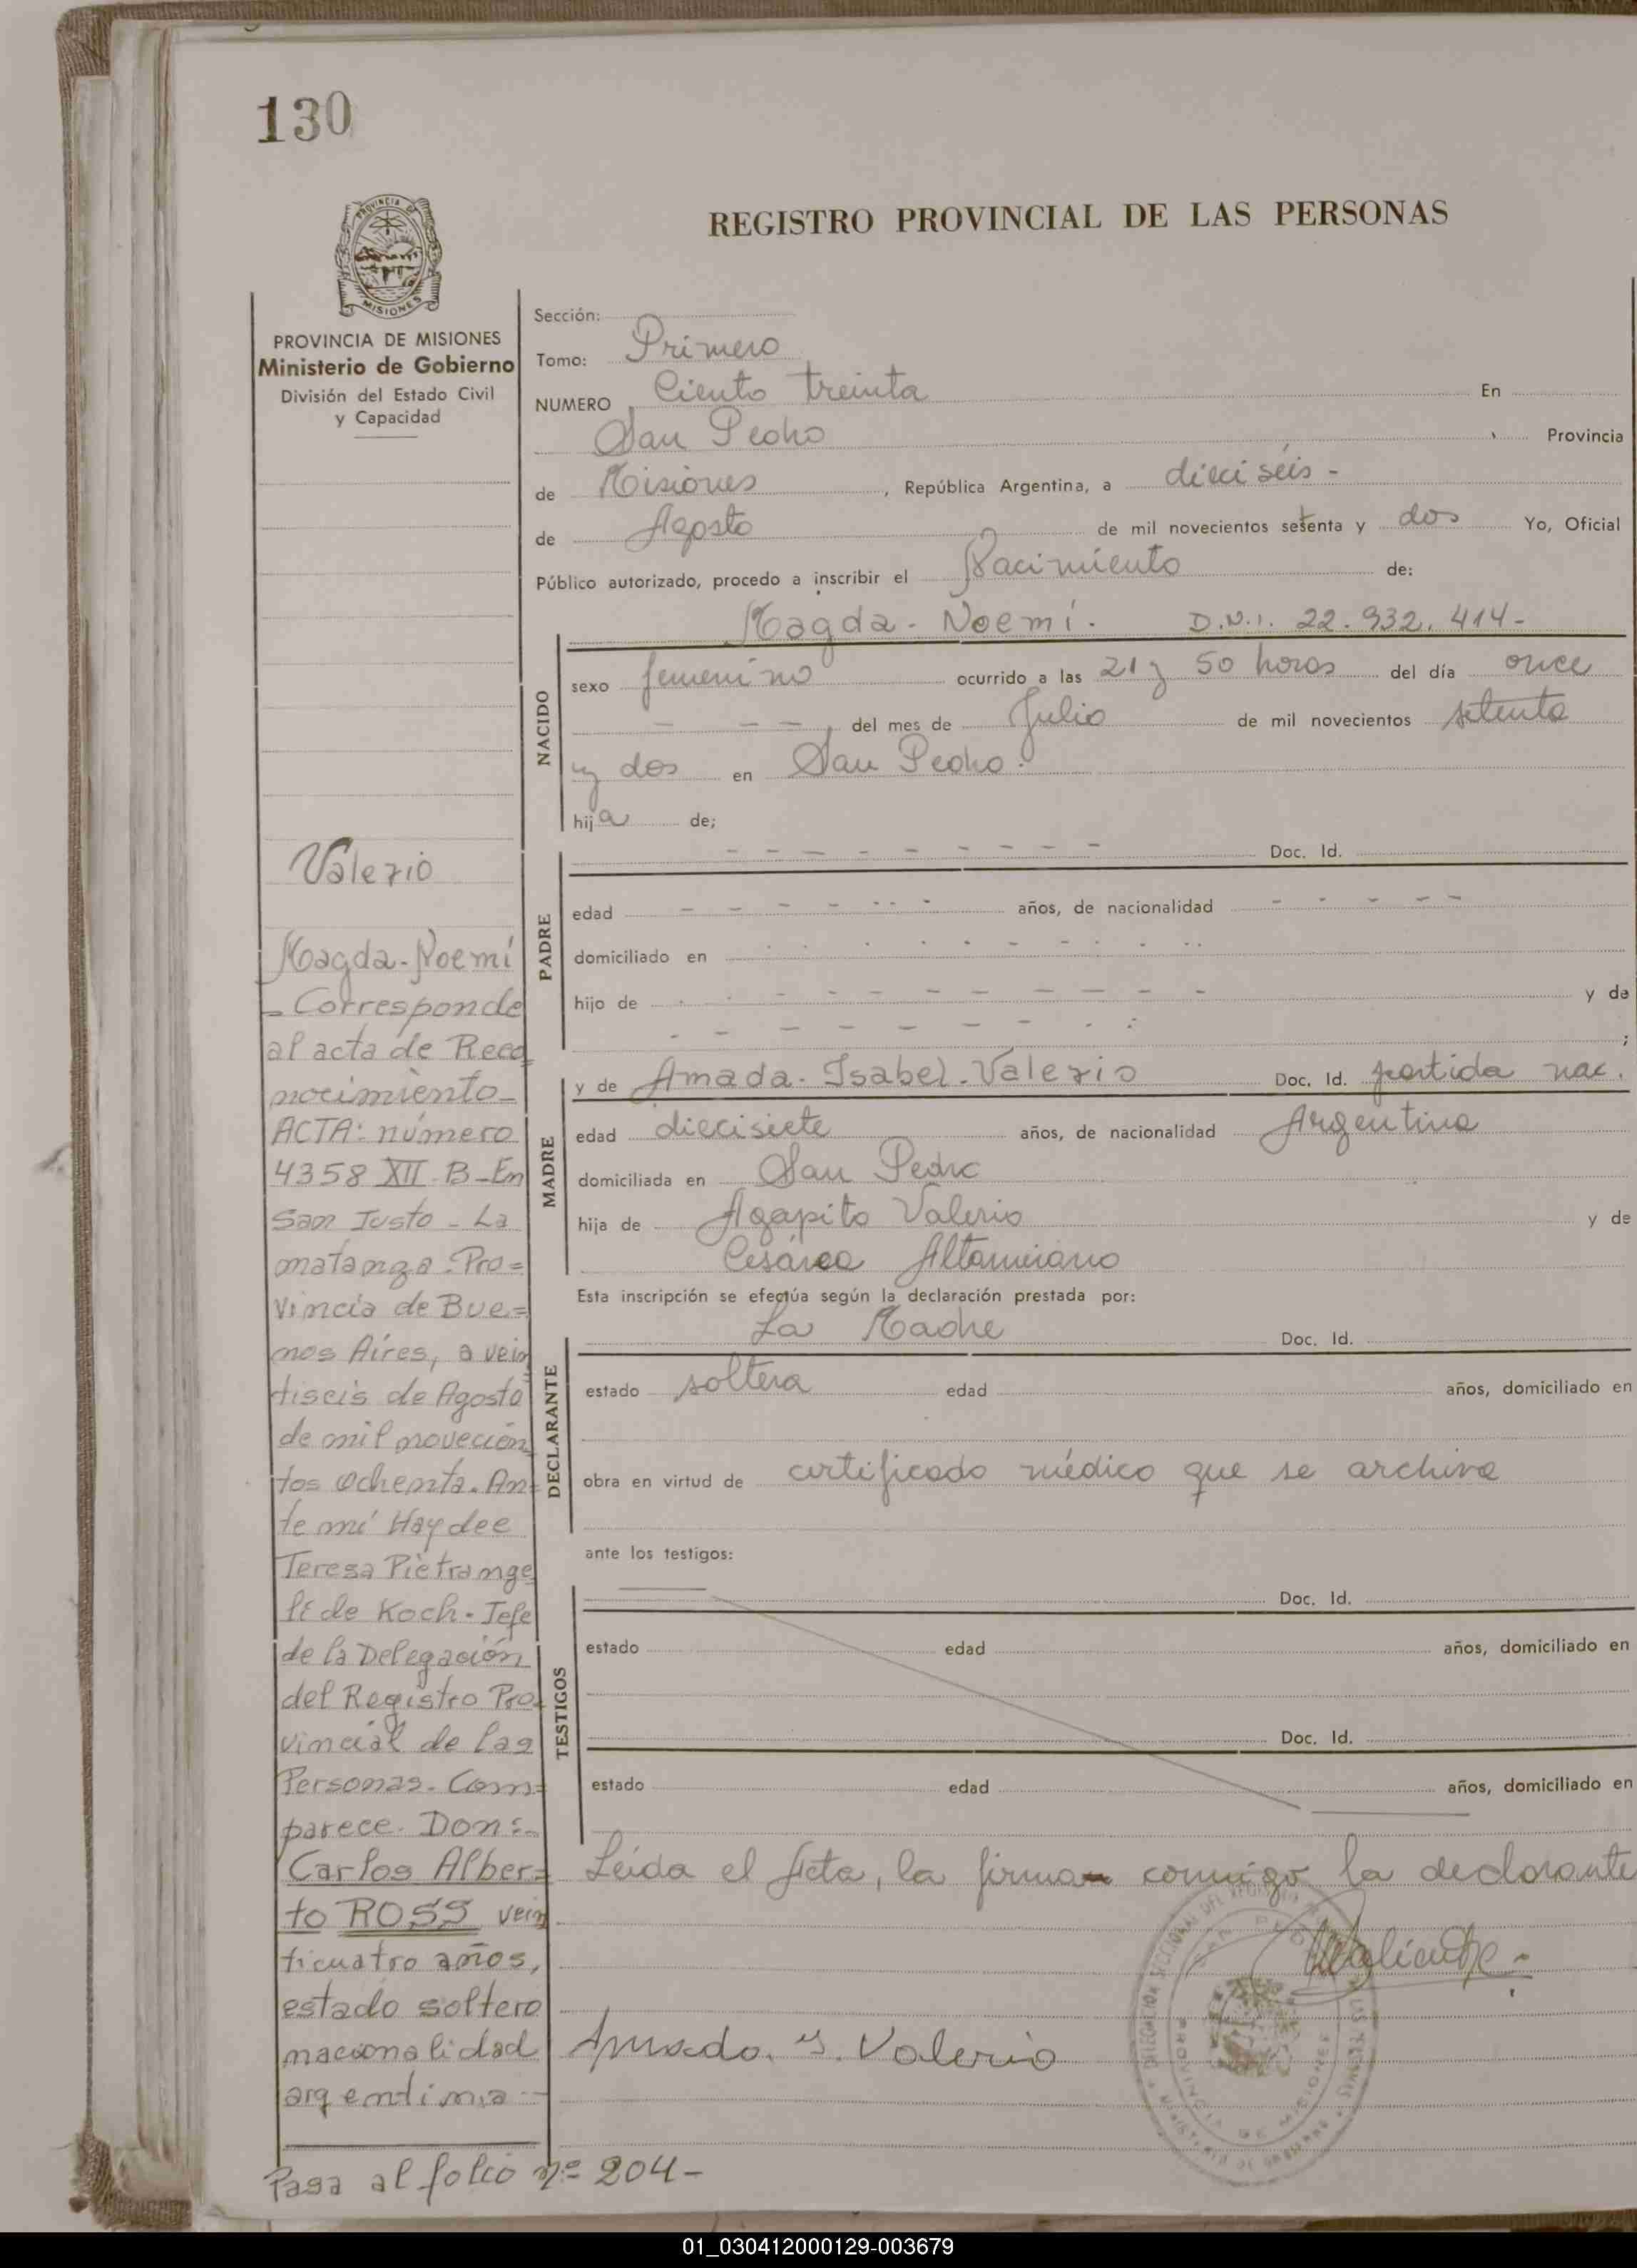 130
REGISTRO PROVINCIAL DE LAS PERSONAS
MISIONES
PROVINCIA DE MISIONES
Ministerio de Gobierno
División del Estado Civil
y Capacidad
Sección:
Tomo: Primero
NUMERO Ciento treinta En
San Pedro, Provincia
de Misiones, República Argentina, a dieciséis -
de Agosto de mil novecientos setenta y dos Yo, Oficial
Público autorizado, procedo a inscribir el Nacimiento de:
Magda - Noemí. D.N.I. 22.932.414-
NACIDO
sexo femenino ocurrido a las 21 y 50 horas del día once
- - - , del mes de Julio de mil novecientos setenta
y dos en San Pedro.
hija de;
PADRE
- - - - - - - - - Doc. Id.
edad - - - - - - - años, de nacionalidad - - - - -
domiciliado en
hijo de y de
;
MADRE
y de Amada - Isabel - Valerio Doc. Id. partida nac.
edad diecisiete años, de nacionalidad Argentina
domiciliada en San Pedro
hija de Agapito Valerio y de
Cesárea Altamirano
Esta inscripción se efectúa según la declaración prestada por:
DECLARANTE
La Madre Doc. Id.
estado soltera edad años, domiciliado en
obra en virtud de certificado médico que se archiva
ante los testigos:
TESTIGOS
Doc. Id.
estado edad años, domiciliado en
Doc. Id.
estado edad años, domiciliado en
Leída el Acta, la firma conmigo la declarante
Amada. Y. Valerio
PROVINCIA DE MISIONES
Valerio
Magda - Noemí
- Corresponde
al acta de Reco=
nocimiento -
ACTA: número
4358 XII - B - En
San Justo - La
matanza. Pro=
vincia de Bue=
nos Aires, a vein
tiseis de Agosto
de mil novecien
tos ochenta. An=
te mí Haydee
Teresa Pietrange
li de Koch - Jefe
de la Delegación
del Registro Pro=
vincial de las
Personas - Com=
parece - Don:-
Carlos Alber=
to ROSS vein
ticuatro años,
estado soltero
nacionalidad
argentina -
Pasa al folio nº 204-
01_030412000129-003679